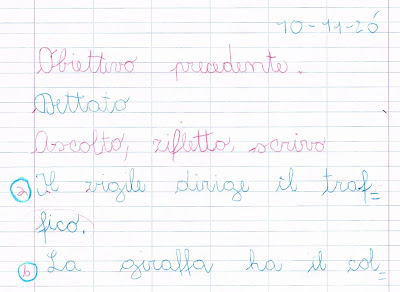 10-11-20
Obiettivo precedente.
Dettato
Ascolto, rifletto, scrivo
a) Il vigile dirige il traf=
fico.
b) La giraffa ha il col=